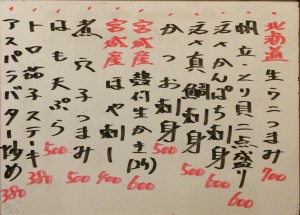 北海道 生ウニつまみ 700
帆立・とり貝二点盛り 600
活〆かんぱち刺身 600
活〆真鯛刺身 500
かつお刺身 500
宮城産 殻付生かき(2ヶ) 600
宮城産 ほや刺し 400
煮穴子つまみ 500
はも天ぷら 500
トロ茄子ステーキ 380
アスパラバター炒め 380